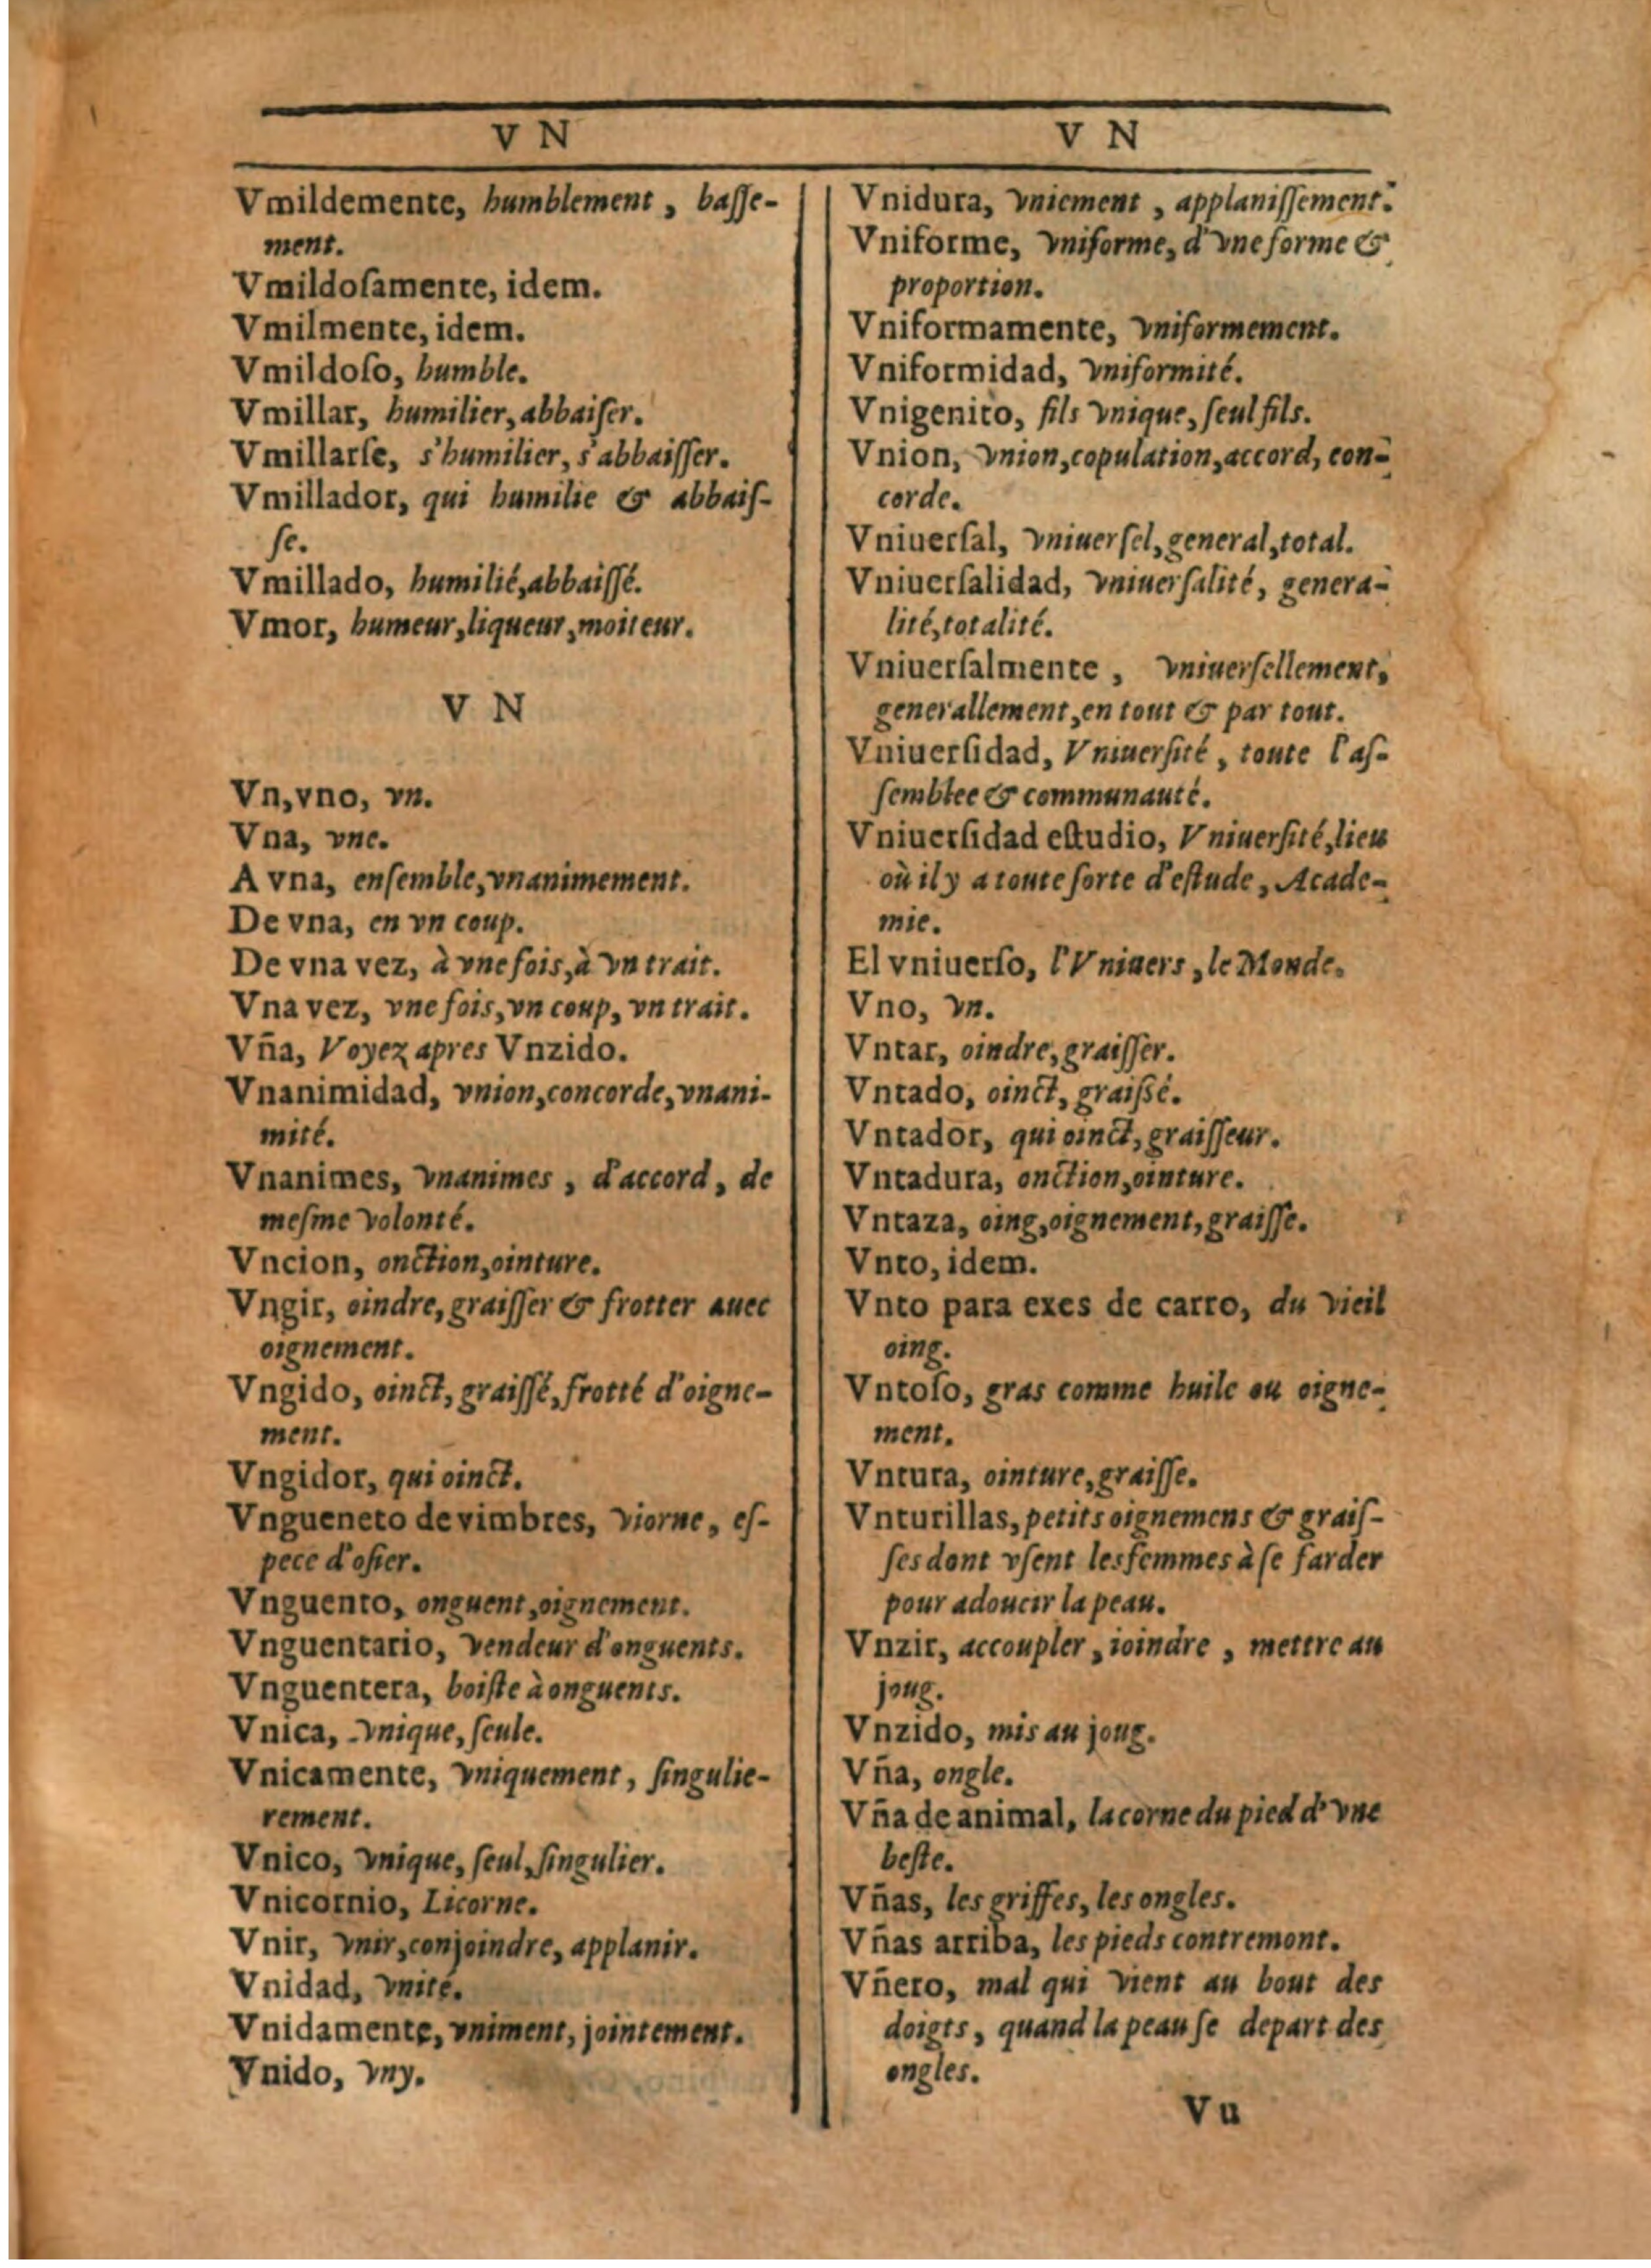 V N
Vmildemente, humblement, baſſe-
ment.
Vmildoſamente, idem.
Vmilmente, idem.
Vmildoſo, humble.
Vmillar, humilier, abbaiſer.
Vmillarſe, s'humilier, s'abbaiſſer.
Vmillador, qui humilie & abbaiſ-
ſe.
Vmillado, humilié, abbaiſſé.
Vmor, humeur, liqueur, moiteur.
V N
Vn, vno, vn.
Vna, vne.
A vna, enſemble, vnanimement.
De vna, en vn coup.
De vna vez, à vne fois, à vn trait.
Vna vez, vne fois, vn coup, vn trait.
Vña, Voyez apres Vnzido.
Vnanimidad, vnion, concorde, vnani-
mité.
Vnanimes, vnanimes, d'accord, de
meſme volonté.
Vncion, onction, ointure.
Vngir, oindre, graiſſer & frotter auec
oignement.
Vngido, oinct, graiſſé, frotté d'oigne-
ment.
Vngidor, qui oinct.
Vngueneto de vimbres, viorne, eſ-
pece d'oſier.
Vnguento, onguent, oignement.
Vnguentario, vendeur d'onguents.
Vnguentera, boiſte à onguents.
Vnica, vnique, ſeule.
Vnicamente, vniquement, ſingulie-
rement.
Vnico, vnique, ſeul, ſingulier.
Vnicornio, Licorne.
Vnir, vnir, conjoindre, applanir.
Vnidad, vnité.
Vnidamente, vniment, jointement.
Vnido, vny.
V N
Vnidura, vniement, applaniſſement.
Vniforme, vniforme, d'vne forme &
proportion.
Vniformamente, vniformement.
Vniformidad, vniformité.
Vnigenito, fils vnique, ſeul fils.
Vnion, vnion, copulation, accord, con-
corde.
Vniuerſal, vniuerſel, general, total.
Vniuerſalidad, vniuerſalité, genera-
lité, totalité.
Vniuerſalmente, vniuerſellement,
generallement, en tout & par tout.
Vniuerſidad, Vniuerſité, toute l'aſ-
ſemblee & communauté.
Vniuerſidad eſtudio, Vniuerſité, lieu
où il y a toute ſorte d'eſtude, Acade-
mie.
El vniuerſo, l'Vniuers, le Monde.
Vno, vn.
Vntar, oindre, graiſſer.
Vntado, oinct, graiſſé.
Vntador, qui oinct, graiſſeur.
Vntadura, onction, ointure.
Vntaza, oing, oignement, graiſſe.
Vnto, idem.
Vnto para exes de carro, du vieil
oing.
Vntoſo, gras comme huile ou oigne-
ment.
Vntura, ointure, graiſſe.
Vnturillas, petits oignemens & graiſ-
ſes dont vſent les femmes à ſe farder
pour adoucir la peau.
Vnzir, accoupler, ioindre, mettre au
joug.
Vnzido, mis au joug.
Vña, ongle.
Vña de animal, la corne du pied d'vne
beſte.
Vñas, les griffes, les ongles.
Vñas arriba, les pieds contremont.
Vñero, mal qui vient au bout des
doigts, quand la peau ſe depart des
ongles.
Vu